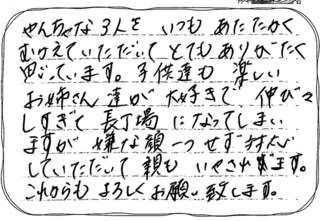 やんちゃな3人を いつも あたたかく
むかえていただいて とても ありがたく
思っています。子供達も 楽しい
お姉さん達が 大好きで 伸び々
しすぎて 長丁場に なってしまい
ますが 嫌な顔一つせず 対応
していただいて 親も いやされます。
これからも よろしく お願い致します。